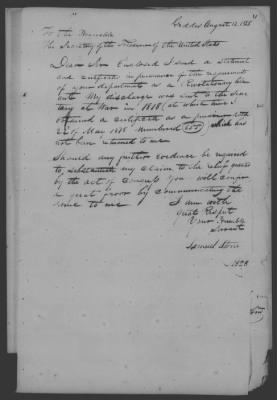 Geddes August 12, 1828
To the Honorable
The Secretary of the Treasury of the United States
Dear Sir Enclosed I send a
and certificate in pursuance of the requirement
of your department as a Revolutionary
My discharge was sent to the Secre
tary at War in 1818 (at which time I
obtained a certificate as a pensioner
22d of May 1818 Numbered 655) which has
not been returned to me
Should any further evidence be required
to substantiate my claim to the relief given
by the act of Congress You will confer
a great favor by communicating the
same to me I am with
great Respect
Your Humble
Servant
Samuel Stone
1828